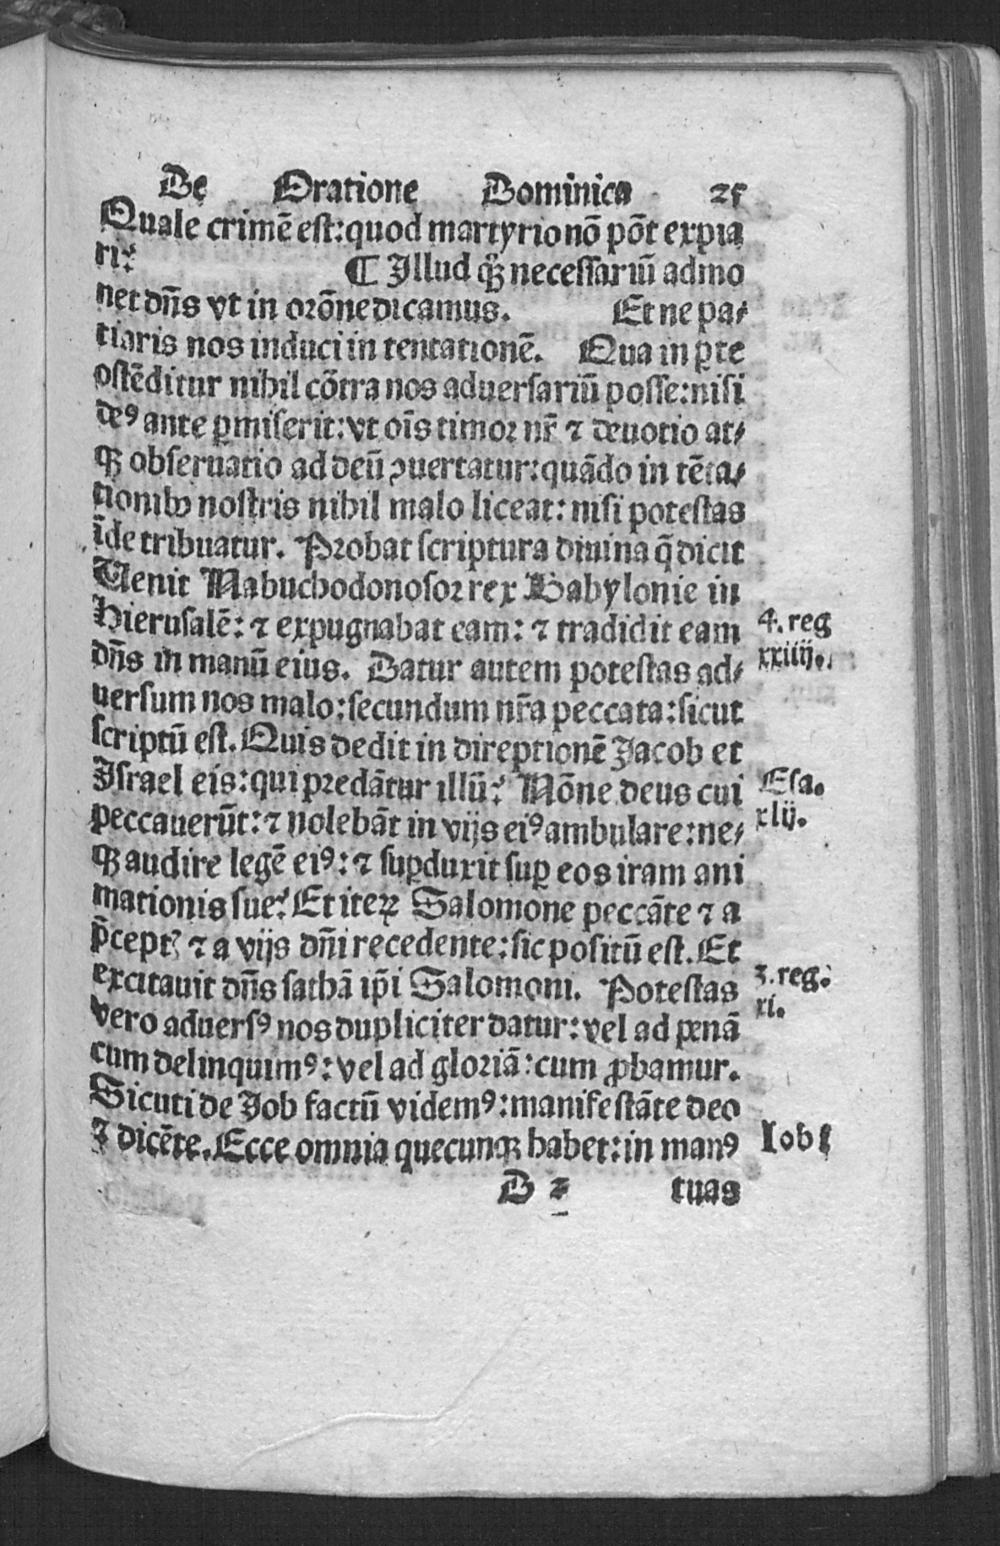 De Oratione Dominica 21
Quale crimē est: quod martyrio nō pōt expia
ri?
¶ Illud qꝫ necessariū admo
net dn̄s vt in orōne dicamus. Et ne pa⸗
tiaris nos induci in tentationē. Qua in ꝑte
ostēditur nihil cōtra nos aduersariū posse: nisi
deꝰ ante ꝑmiserit: vt oīs timor nr̄ ⁊ deuotio at⸗
qꝫ obseruatio ad deū ꝯuertatur: quādo in tēta⸗
tionibꝰ nostris nihil malo liceat: nisi potestas
īde tribuatur. Probat scriptura diuina q̄ dicit
Uenit Nabuchodonosor rex Babylonie in
Hierusalē: ⁊ expugnabat eam: ⁊ tradidit eam
4. reg
xxiiij.
dn̄s in manū eius. Datur autem potestas ad⸗
uersum nos malo: secundum nr̄a peccata: sicut
scriptū est. Quis dedit in direptionē Jacob et
Israel eis: qui predātur illū? Nōne deus cui
Esa.
xlij.
peccauerūt: ⁊ nolebāt in vijs eiꝰ ambulare: ne⸗
qꝫ audire legē eiꝰ: ⁊ suꝑduxit suꝑ eos iram ani
mationis sue? Et iteꝝ Salomone peccāte ⁊ a
p̄ceptꝭ ⁊ a vijs dn̄i recedente: sic positū est. Et
excitauit dn̄s sathā ip̄i Salomoni. Potestas
3. reg.
xi.
vero aduersꝰ nos dupliciter datur: vel ad penā
cum delinquimꝰ: vel ad gloriā: cum ꝓbamur.
Sicuti de Job factū videmꝰ: manifestāte deo
⁊ dicēte. Ecce omnia quecunqꝫ habet: in manꝰ
Iob 1
D 2 tuas